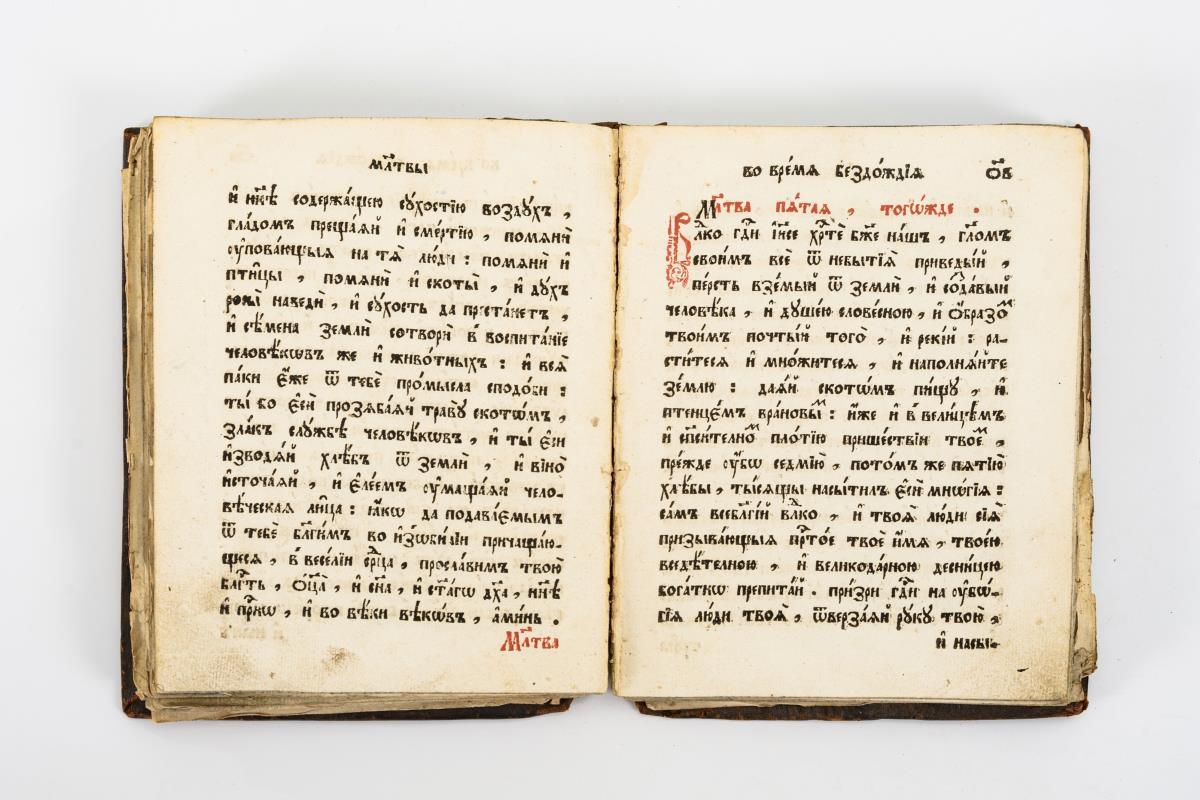 мл҃твы
и҆ нн҃ѣ содержа́щею сꙋ́хостїю во́здꙋхъ ,
гла́домъ преща́ѧй и҆ сме́ртїю , помѧнѝ
ᲂу҆пова́ющыѧ на тѧ̀ лю́ди : помѧнѝ и҆
пти̑цы , помѧнѝ и҆ скоты̀ , и҆ дꙋ́хъ
ро́сный наведѝ , и҆ сꙋ́хость да преста́нетъ ,
и҆ сѣ́мена землѝ сотворѝ в̾ воспита́нїе
человѣ́кѡвъ же и҆ живо́тныхъ : и҆ всѧ̀
па́ки є҆́же ѿ тебѐ про́мысла сподо́би :
ты́ бо є҆сѝ прозѧба́ѧй травꙋ̀ скотѡ́мъ ,
зла́къ слꙋ́жбѣ человѣ́кѡвъ , и҆ ты̀ є҆сѝ
и҆зводѧ́й хлѣ́бъ ѿ землѝ , и҆ вино̀
и҆сточа́ѧй , и҆ є҆ле́емъ ᲂу҆маща́ѧй чело-
вѣ́ческаѧ ли́ца : ꙗ҆́кѡ да подава́емымъ
ѿ тебѐ благи́мъ во и҆зѡби́лїи причаща́ю-
щесѧ , в̾ весе́лїи ср҃ца , просла́вимъ твою̀
бл҃гть , ѻ҆ц҃а̀ , и҆ сн҃а , и҆ ст҃а́гѡ дх҃а , нн҃ѣ
и҆ при́снѡ , и҆ во вѣ́ки вѣкѡ́въ , а҆ми́нь .
Мл҃тва
во вре́мѧ бездо́ждїѧ ѻ҃в
Мл҃тва пѧ́таѧ , тогѡ́жде .
Влⷣко гдⷭ҇и і҆и҃се хрⷭ҇тѐ бж҃е на́шъ , гл҃омъ
свои́мъ всѐ ѿ небытїѧ̀ приведы́й ,
пе́рсть взе́мый ѿ землѝ , и҆ созда́вый
человѣ́ка , и҆ дꙋше́ю слове́сною , и҆ ѻ҆́бразоⷨ
твои́мъ почты́й того̀ , и҆ реки́й : ра-
сти́тесѧ и҆ мно́житесѧ , и҆ наполнѧ́йте
зе́млю : даѧ́й скотѡ́мъ пи́щꙋ , и҆
птенцє́мъ вра́новыⷨ : и҆́же и҆ в̾ вели́цѣмъ
и҆ сп҃си́телноⷨ пло́тїю прише́ствїи твоеⷨ ,
пре́жде ᲂу҆́бѡ седмїю̀ , пото́мъ же пѧтїю̀
хлѣ́бы , ты́сѧщы насы́тилъ є҆сѝ мнѡ́гїѧ :
са́мъ всебл҃гі́й влⷣко , и҆ твоѧ̀ лю́ди сїѧ̀
призыва́ющыѧ прⷭ҇то́е твоѐ и҆́мѧ , твое́ю
вседѣ́телною , и҆ великода́рною десни́цею
бога́ткѡ препита́й . при́зри гдⷭ҇и на ᲂу҆бѡ́-
гїѧ лю́ди твоѧ̀ , ѿверза́ѧй рꙋ́кꙋ твою̀ ,
и҆ насы-